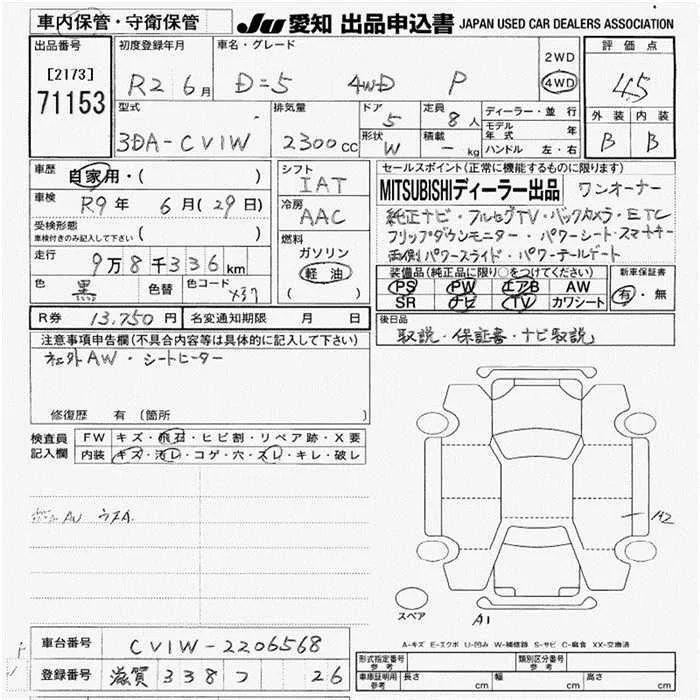 車内保管・守衛保管 JU 愛知 出品申込書 JAPAN USED CAR DEALERS ASSOCIATION
出品番号 [2173] 71153
初度登録年月 R2 6月
車名・グレード D=5 4WD P
2WD 4WD
評価点 4.5
外装 内装
B B
型式 3DA-CV1W
排気量 2300cc
ドア 5
定員 8人
形状 W
積載 - kg
ディーラー・並行
モデル年式 年
ハンドル 左・右
車歴 自家用・( )
車検 R9年 6月(29日)
受検形態 車検付きのみ記入して下さい ( )
走行 9万8千336km
色 黒 色替 色コード X37
シフト IAT
冷房 AAC
燃料 ガソリン 軽油 ( )
セールスポイント(正常に機能するものに限ります)
MITSUBISHIディーラー出品 ワンオーナー
純正ナビ・フルセグTV・バックカメラ・ETC
フリップダウンモニター・パワーシート・スマートキー
両側パワースライド・パワーテールゲート
装備品(純正品に限り○をつけてください) 新車保証書
PS PW エアB AW 有・無
SR ナビ TV カワシート
R券 13,750円 名変通知期限 月 日
後日品 取説・保証書・ナビ取説
注意事項申告欄(不具合内容等は具体的に記入して下さい)
社外AW・シートヒーター
修復歴 有(箇所
検査員記入欄 FW キズ・飛石・ヒビ割・リペア跡・X要
内装 キズ・汚レ・コゲ・穴・スレ・キレ・破レ
AW
A2
スペア A1
A-キズ E-エクボ U-凹み W-補修跡 S-サビ C-腐食 XX-交換済
車台番号 CV1W-2206568
登録番号 滋賀 338 つ 26
形式指定番号 参考 類別区分番号 参考
車庫証明用 参考 長さ cm 幅 cm 高さ cm